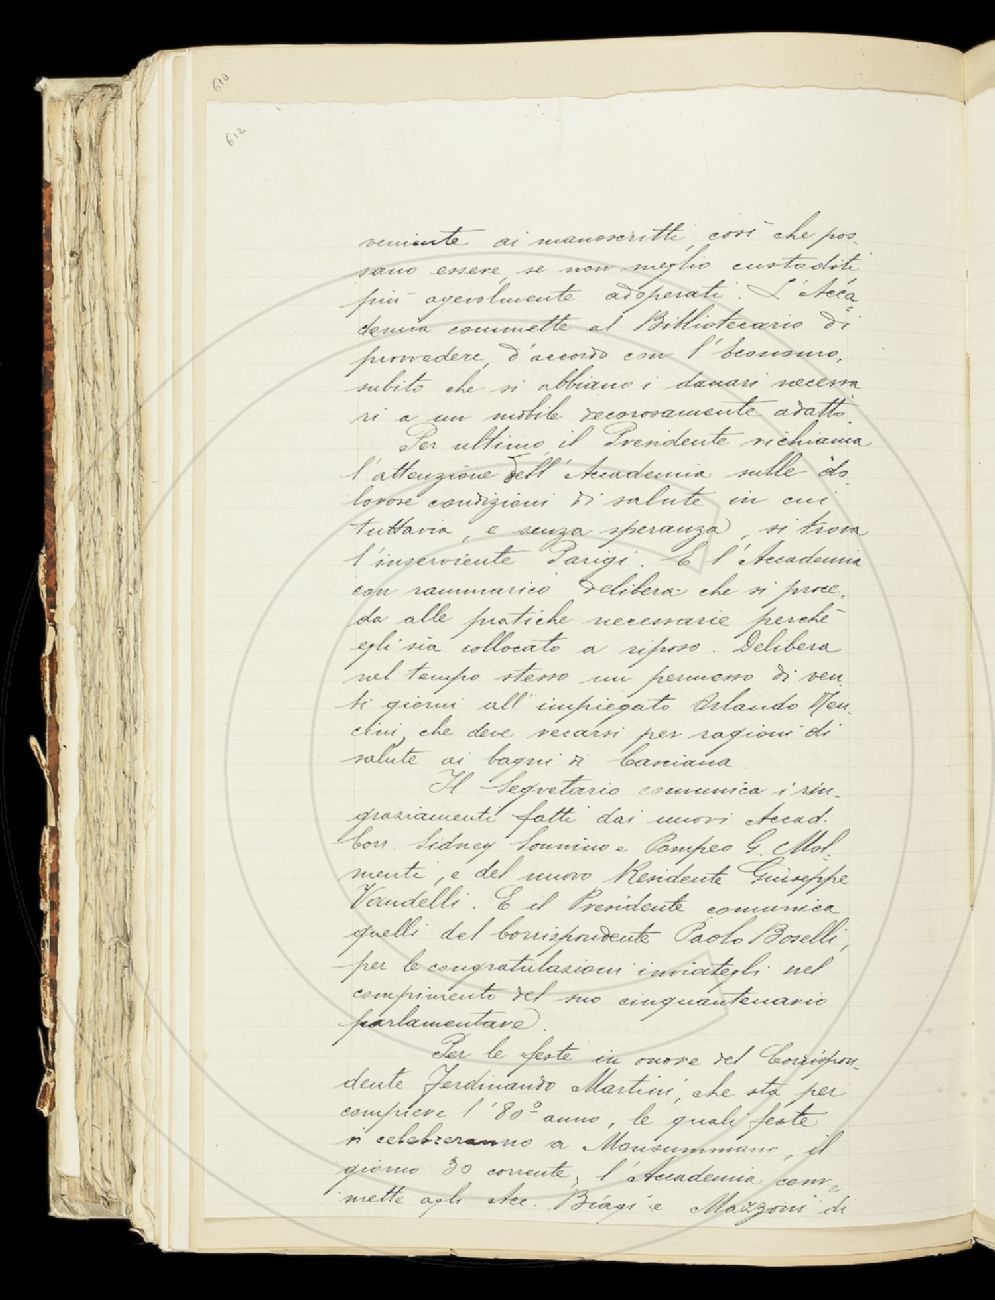 610
612
veniente ai manoscritti, così che pos-
sano essere, se non meglio custoditi
più agevolmente adoperati. L'Acca-
demia commette al Bibliotecario di
provvedere, d'accordo con l'Economo,
subito che si abbiano i danari necessa
ri a un mobile decorosamente adatto.
Per ultimo, il Presidente richiama
l'attenzione dell'Accademia sulle do-
lorose condizioni di salute in cui
tuttavia, e senza speranza, si trova
l'inserviente Parigi. E l'Accademia
con rammarico delibera che si proce-
da alle pratiche necessarie perchè
egli sia collocato a riposo. Delibera
nel tempo stesso un permesso di ven-
ti giorni all'impiegato Orlando Men-
cini, che deve recarsi per ragioni di
salute ai bagni di Casciana.
Il Segretario comunica i rin-
graziamenti fatti dai nuovi Accad.
Corr. Sidney Sonnino e Pompeo G. Mol-
menti, e del nuovo Residente Giuseppe
Vandelli. E il Presidente comunica
quelli del Corrispondente Paolo Boselli,
per le congratulazioni inviategli nel
compimento del suo cinquantenario
parlamentare.
Per le feste in onore del Corrispon-
dente Ferdinando Martini, che sta per
compiere l'80º anno, le quali feste
si celebreranno a Monsummano, il
giorno 30 corrente, l'Accademia com-
mette agli Acc. Biagi e Mazzoni di